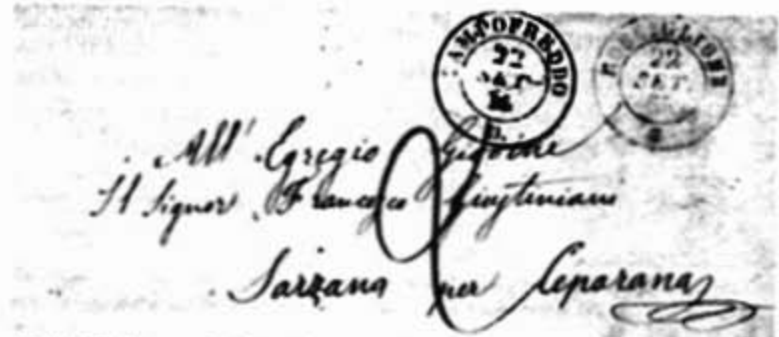 CAMPOFREDDO
22
SET.
ROSSIGLIONE
22
SET.
All' Egregio Giovine
Il Signor Francesco Giustiniani
Sarzana per Ceparana